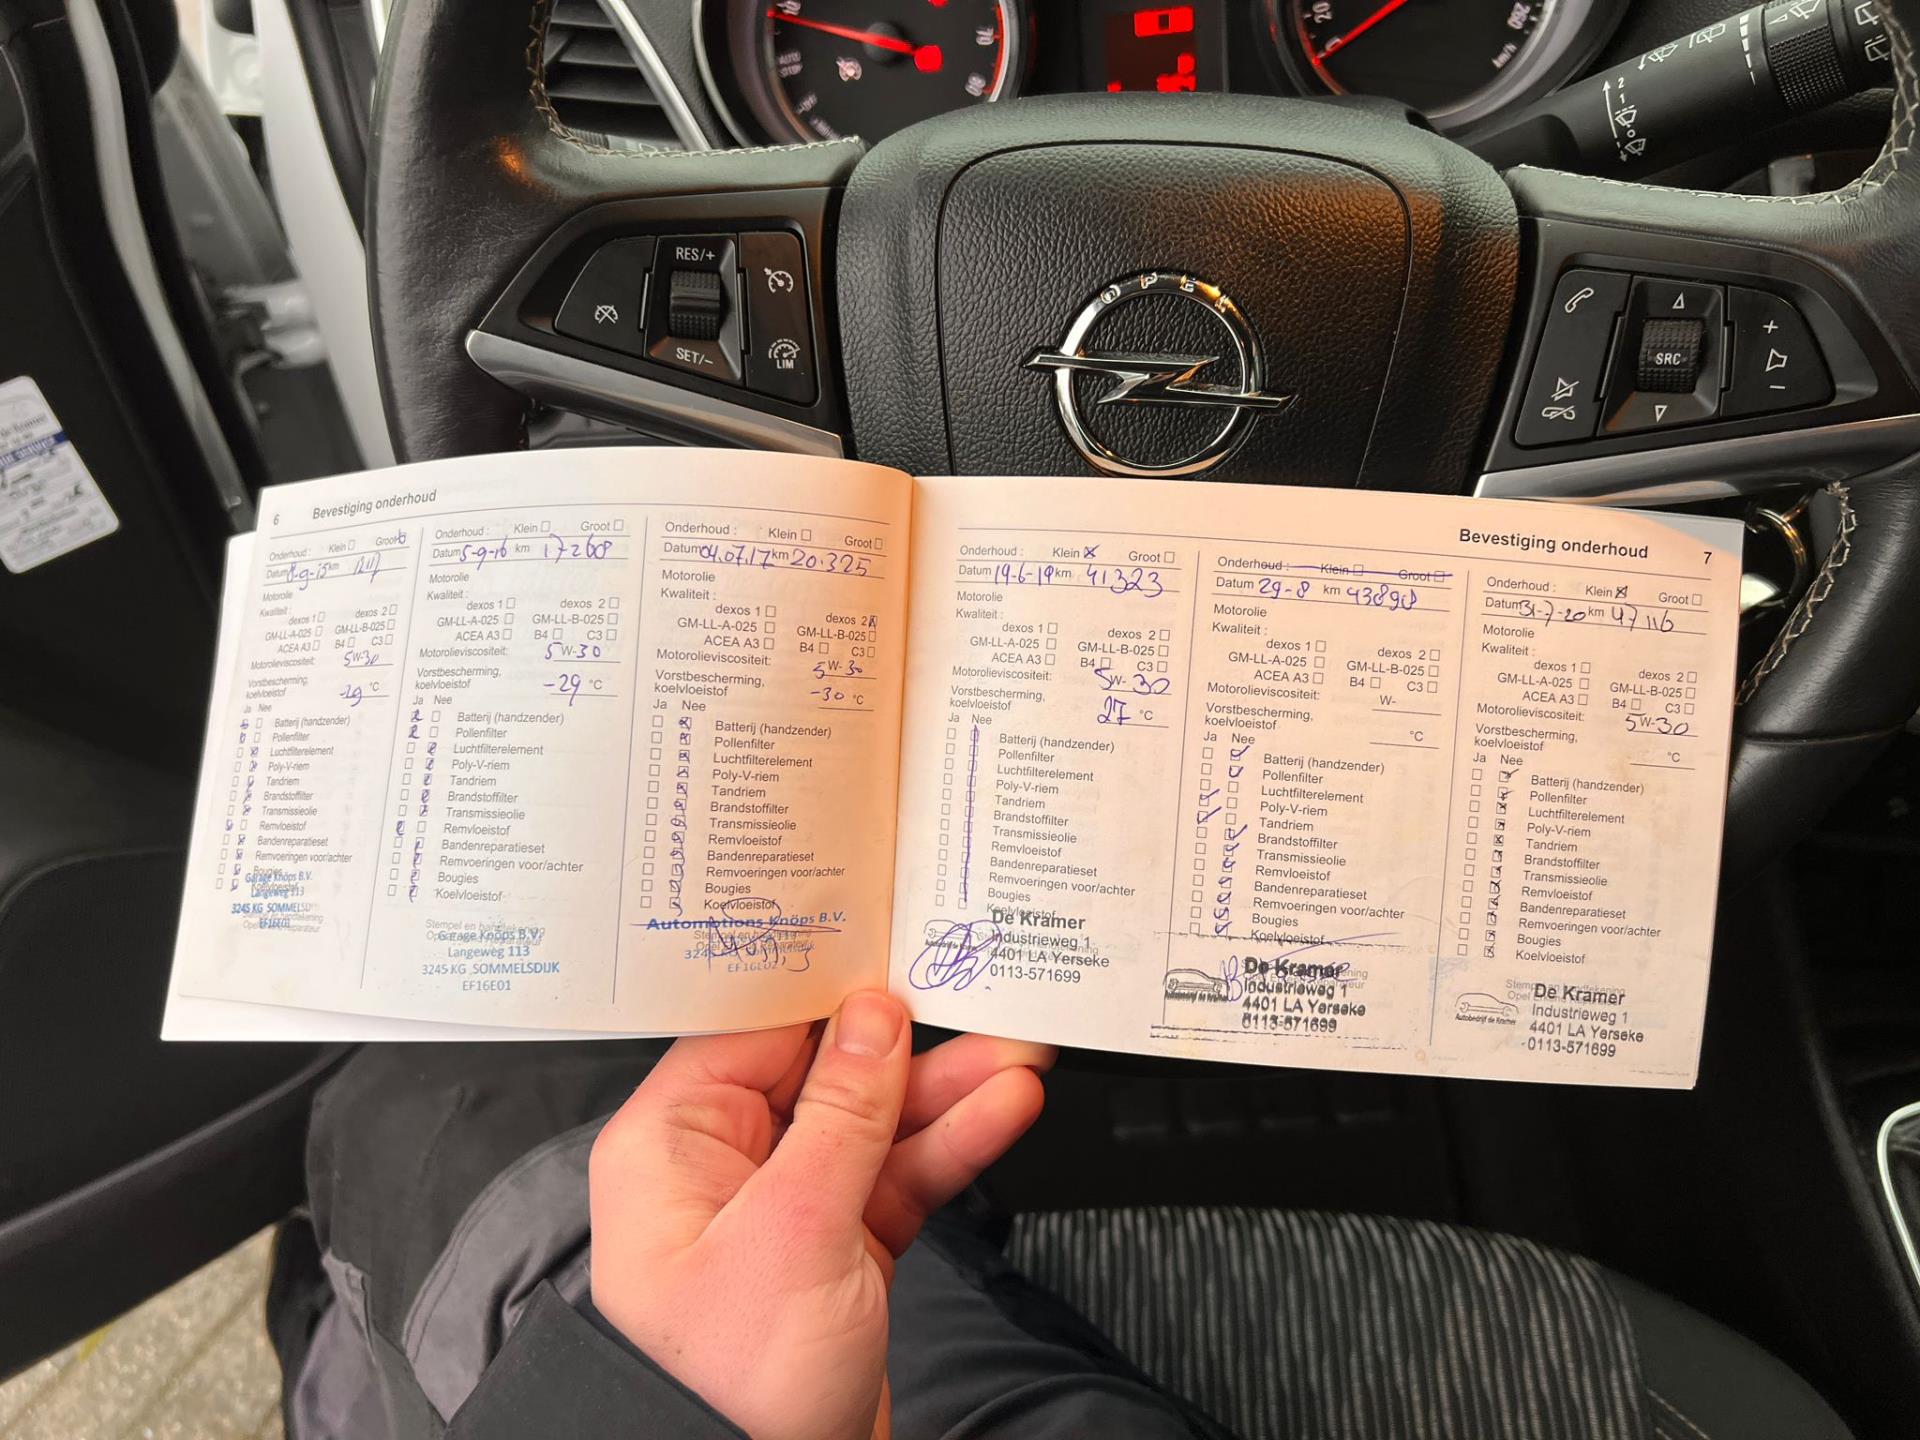 AUTO
STOP
20
260
km/h
2
1
0
RES/+
SET/-
LIM
OPEL
SRC
De Kramer
6 Bevestiging onderhoud
Onderhoud : Klein Groot
Datum 8-9-15 km
Motorolie
Kwaliteit :
dexos 1 dexos 2
GM-LL-A-025 GM-LL-B-025
ACEA A3 B4 C3
Motorolieviscositeit: 5W-30
Vorstbescherming,
koelvloeistof -29 °C
Ja Nee
Batterij (handzender)
Pollenfilter
Luchtfilterelement
Poly-V-riem
Tandriem
Brandstoffilter
Transmissieolie
Remvloeistof
Bandenreparatieset
Remvoeringen voor/achter
Bougies
Koelvloeistof
Garage Knöps B.V.
Langeweg 113
3245 KG SOMMELSD
EF16E01
Onderhoud : Klein Groot
Datum 5-9-16 km 17268
Motorolie
Kwaliteit :
dexos 1 dexos 2
GM-LL-A-025 GM-LL-B-025
ACEA A3 B4 C3
Motorolieviscositeit: 5W-30
Vorstbescherming,
koelvloeistof -29 °C
Ja Nee
Batterij (handzender)
Pollenfilter
Luchtfilterelement
Poly-V-riem
Tandriem
Brandstoffilter
Transmissieolie
Remvloeistof
Bandenreparatieset
Remvoeringen voor/achter
Bougies
Koelvloeistof
Garage Knöps B.V.
Langeweg 113
3245 KG SOMMELSDIJK
EF16E01
Onderhoud : Klein Groot
Datum 04.07.17 km 20.325
Motorolie
Kwaliteit :
dexos 1 dexos 2
GM-LL-A-025 GM-LL-B-025
ACEA A3 B4 C3
Motorolieviscositeit: 5W-30
Vorstbescherming,
koelvloeistof -30 °C
Ja Nee
Batterij (handzender)
Pollenfilter
Luchtfilterelement
Poly-V-riem
Tandriem
Brandstoffilter
Transmissieolie
Remvloeistof
Bandenreparatieset
Remvoeringen voor/achter
Bougies
Koelvloeistof
Automotions Knöps B.V.
EF16E02
Bevestiging onderhoud 7
Onderhoud : Klein Groot
Datum 19-6-19 km 41323
Motorolie
Kwaliteit :
dexos 1 dexos 2
GM-LL-A-025 GM-LL-B-025
ACEA A3 B4 C3
Motorolieviscositeit: 5W-30
Vorstbescherming,
koelvloeistof 27 °C
Ja Nee
Batterij (handzender)
Pollenfilter
Luchtfilterelement
Poly-V-riem
Tandriem
Brandstoffilter
Transmissieolie
Remvloeistof
Bandenreparatieset
Remvoeringen voor/achter
Bougies
Koelvloeistof
De Kramer
Industrieweg 1
4401 LA Yerseke
0113-571699
Onderhoud : Klein Groot
Datum 29-8 km 43898
Motorolie
Kwaliteit :
dexos 1 dexos 2
GM-LL-A-025 GM-LL-B-025
ACEA A3 B4 C3
Motorolieviscositeit: W-
Vorstbescherming,
koelvloeistof °C
Ja Nee
Batterij (handzender)
Pollenfilter
Luchtfilterelement
Poly-V-riem
Tandriem
Brandstoffilter
Transmissieolie
Remvloeistof
Bandenreparatieset
Remvoeringen voor/achter
Bougies
Koelvloeistof
De Kramer
Industrieweg 1
4401 LA Yerseke
0113-571699
Autobedrijf de Kramer
Onderhoud : Klein Groot
Datum 31-7-20 km 47116
Motorolie
Kwaliteit :
dexos 1 dexos 2
GM-LL-A-025 GM-LL-B-025
ACEA A3 B4 C3
Motorolieviscositeit: 5W-30
Vorstbescherming,
koelvloeistof °C
Ja Nee
Batterij (handzender)
Pollenfilter
Luchtfilterelement
Poly-V-riem
Tandriem
Brandstoffilter
Transmissieolie
Remvloeistof
Bandenreparatieset
Remvoeringen voor/achter
Bougies
Koelvloeistof
De Kramer
Industrieweg 1
4401 LA Yerseke
0113-571699
Autobedrijf de Kramer